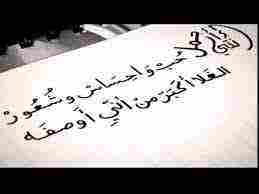 حُب وَاحسَاسْ وشُعُورْ
الغلا أكبَر مِن أنّي أوصفَه